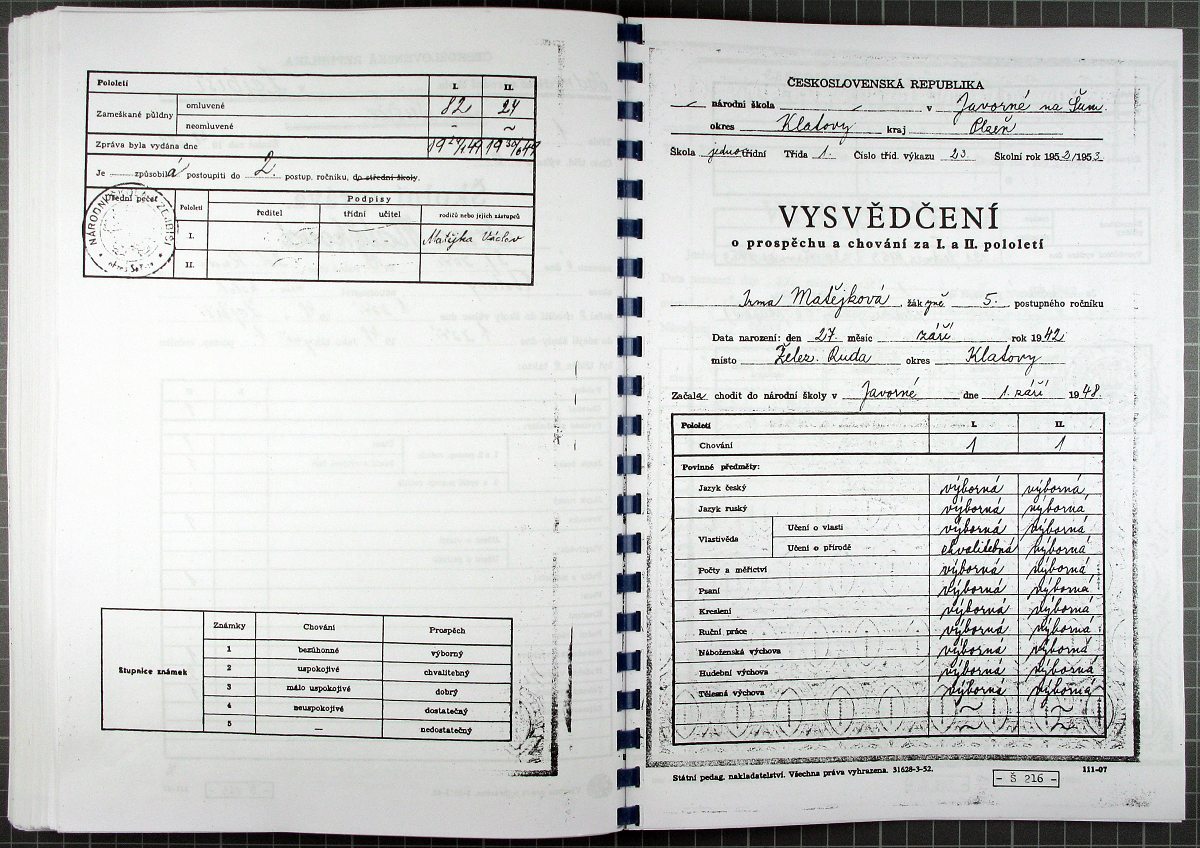 Pololetí I. II.
Zameškané půldny omluvené 82 24
neomluvené - ~
Zpráva byla vydána dne
Je způsobilá postoupiti do 2. postup. ročníku, do střední školy.
Úřední pečeť Pololetí Podpisy
ředitel třídní učitel rodičů nebo jejich zástupců
I. Matějka Václav
II.
NÁRODNÍ ŠKOLA
Stupnice známek Známky Chování Prospěch
1 bezúhonné výborný
2 uspokojivé chvalitebný
3 málo uspokojivé dobrý
4 neuspokojivé dostatečný
5 — nedostatečný
ČESKOSLOVENSKÁ REPUBLIKA
národní škola v Javorné na Šum.
okres Klatovy kraj Plzeň
Škola jednotřídní Třída 1. Číslo tříd. výkazu 23 Školní rok 1952/1953
VYSVĚDČENÍ
o prospěchu a chování za I. a II. pololetí
Irma Matějková, žákyně 5. postupného ročníku
Data narození: den 27. měsíc září rok 1942
místo Želez. Ruda okres Klatovy
Začala chodit do národní školy v Javorné dne 1. září 1948.
Pololetí I. II.
Chování 1 1
Povinné předměty:
Jazyk český výborná výborná
Jazyk ruský výborná výborná
Vlastivěda Učení o vlasti výborná výborná
Učení o přírodě chvalitebná výborná
Počty a měřictví výborná výborná
Psaní výborná výborná
Kreslení výborná výborná
Ruční práce výborná výborná
Náboženská výchova výborná výborná
Hudební výchova výborná výborná
Tělesná výchova výborná výborná
~ ~
~ ~
Státní pedag. nakladatelství. Všechna práva vyhrazena. 31628-3-52.
- Š 216 -
111-07